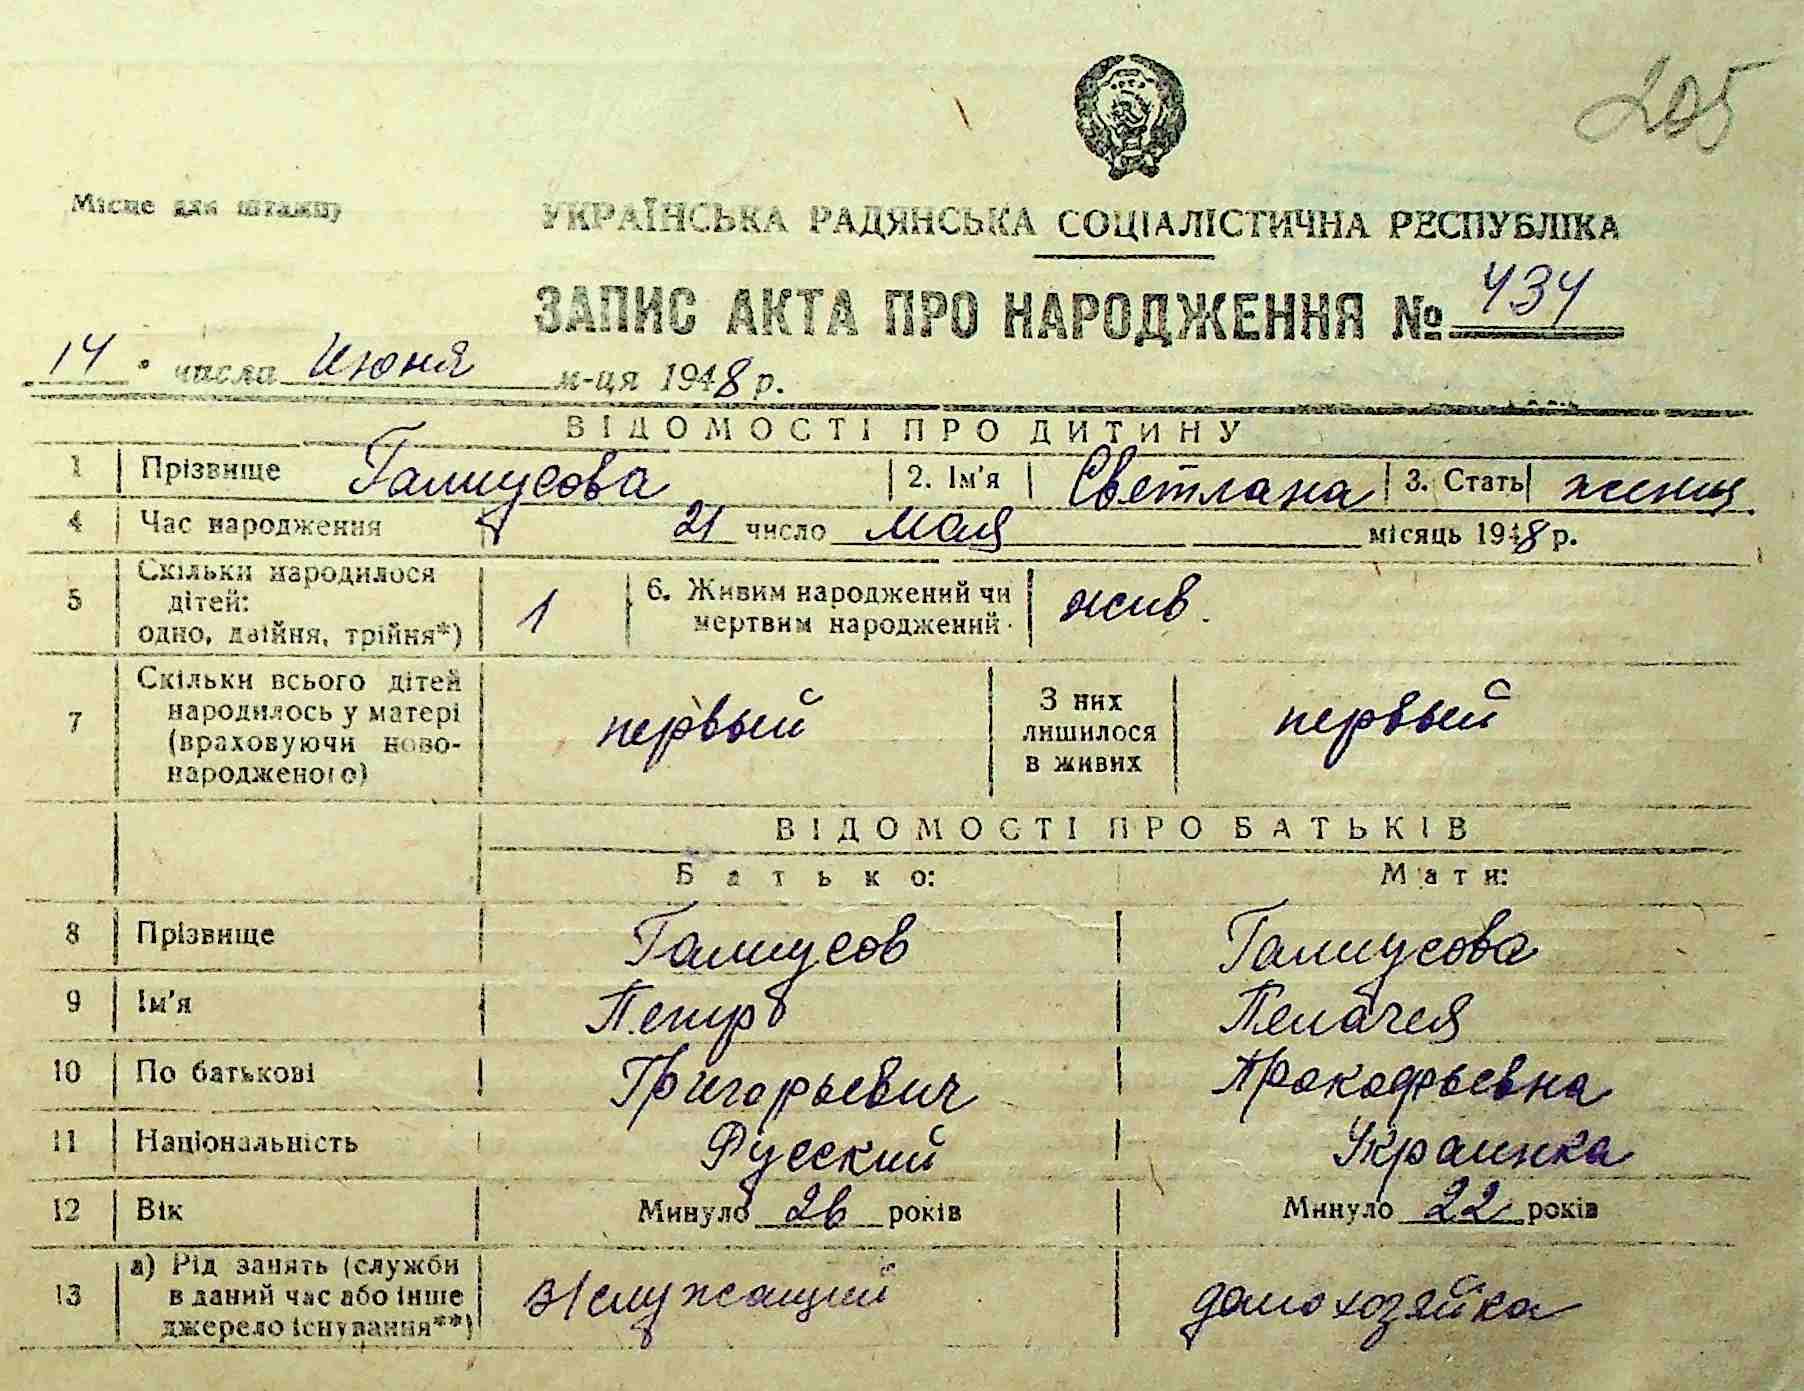 205
Місце для штампу
УКРАЇНСЬКА РАДЯНСЬКА СОЦІАЛІСТИЧНА РЕСПУБЛІКА
ЗАПИС АКТА ПРО НАРОДЖЕННЯ № 434
14 числа Июня м-ця 1948 р.
ВІДОМОСТІ ПРО ДИТИНУ
1 Прізвище Галиусова 2. Ім'я Светлана 3. Стать женщ.
4 Час народження 21 число мая місяць 1948 р.
5 Скільки народилося дітей: одно, двійня, трійня*) 1 6. Живим народжений чи мертвим народжений жив.
7 Скільки всього дітей народилось у матері (враховуючи ново-народженого) первый З них лишилося в живих первый
ВІДОМОСТІ ПРО БАТЬКІВ
Батько: Мати:
8 Прізвище Галиусов Галиусова
9 Ім'я Петр Пелагея
10 По батькові Григорьевич Прокофьевна
11 Національність Русский Украинка
12 Вік Минуло 26 років Минуло 22 років
13 а) Рід занять (служби в даний час або інше джерело існування**) в/служащий домохозяйка